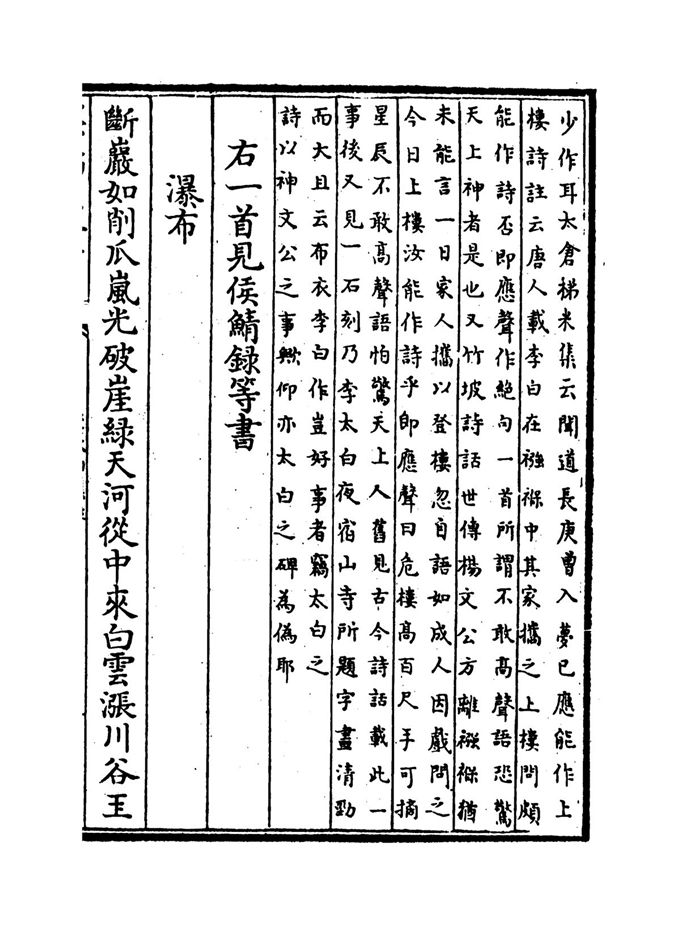 少作耳太倉稊米集云聞道長庚曾入夢已應能作上
樓詩註云唐人載李白在襁褓中其家攜之上樓問頗
能作詩否即應聲作絶句一首所謂不敢髙聲語恐驚
天上神者是也又竹坡詩話世傳楊文公方離襁褓猶
未能言一日家人攜以登樓忽自語如成人因戲問之
今日上樓汝能作詩乎即應聲曰危樓髙百尺手可摘
星辰不敢髙聲語怕驚天上人舊見古今詩話載此一
事後又見一石刻乃李太白夜宿山寺所題字畫清勁
而大且云布衣李白作豈好事者竊太白之
詩以神文公之事歟抑亦太白之碑為偽耶
右一首見侯鯖録等書
瀑布
斷巖如削瓜嵐光破崖緑天河從中來白雲漲川谷玉